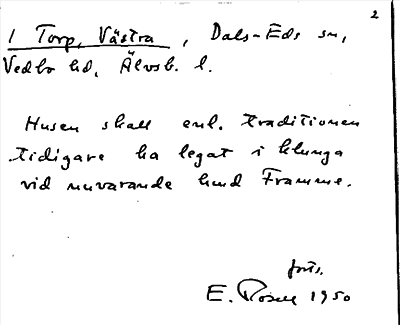 2
1 Torp, Västra, Dals-Eds sn,
Vedbo hd, Älvsb. l.
Husen skall enl. traditionen
tidigare ha legat i klunga
vid nuvarande hmd Framme.
forts.
E. Rosell 1950